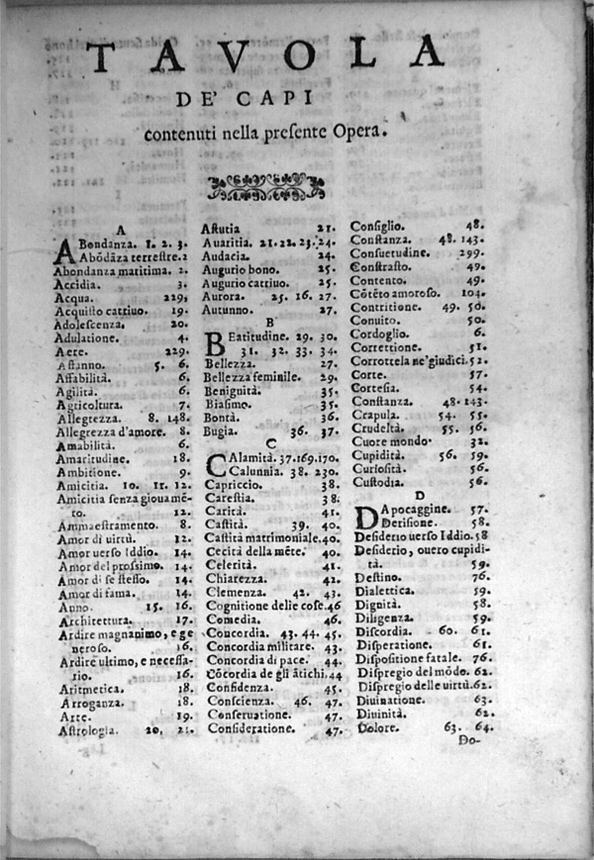 TAVOLA
DE' CAPI
contenuti nella preſente Opera.
A
ABondanza. 1. 2. 3.
Abōdāza terreſtre. 2
Abondanza maritima. 2.
Accidia. 3.
Acqua. 229,
Acquiſto cattiuo. 19.
Adoleſcenza. 20.
Adulatione. 4.
Aere. 229.
Affanno. 5. 6.
Affabilità. 6.
Agilità. 6.
Agricoltura. 7.
Allegrezza. 8. 148.
Allegrezza d'amore. 8.
Amabilità. 6.
Amaritudine. 18.
Ambitione. 9.
Amicitia. 10. 11. 12.
Amicitia ſenza giouamē-
to. 12.
Ammaeſtramento. 8.
Amor di uirtù. 12.
Amor uerſo Iddio. 14.
Amor del proſsimo. 14.
Amor di ſe ſteſſo. 14.
Amor di fama. 14.
Anno. 15. 16.
Architettura. 17.
Ardire magnanimo, e ge
neroſo. 16.
Ardire ultimo, e neceſſa-
rio. 16.
Aritmetica. 18.
Arroganza. 18.
Arte. 19.
Aſtrologia. 20. 21.
Aſtutia 21.
Auaritia. 21. 22. 23. 24.
Audacia. 24.
Augurio bono. 25.
Augurio cattiuo. 25.
Aurora. 25. 16. 27.
Autunno. 27.
B
BEatitudine. 29. 30.
31. 32. 33. 34.
Bellezza. 27.
Bellezza feminile. 29.
Benignità. 35.
Biaſimo. 35.
Bontà. 36.
Bugia. 36. 37.
C
CAlamità. 37. 169. 170.
Calunnia. 38. 230.
Capriccio. 38.
Careſtia. 38.
Carità. 41.
Caſtità. 39. 40.
Caſtità matrimoniale. 40.
Cecità della mēte. 40.
Celerità. 41.
Chiarezza. 42.
Clemenza. 42. 43.
Cognitione delle coſe. 46
Comedia. 46.
Concordia. 43. 44. 45.
Concordia militare. 43.
Concordia di pace. 44.
Cōcordia de gli ātichi. 44
Confidenza. 45.
Conſcienza. 46. 47.
Conſeruatione. 47.
Conſideratione. 47.
Conſiglio. 48.
Conſtanza. 48. 143.
Conſuetudine. 299.
Contraſto. 49.
Contento. 49.
Cōtēto amoroſo. 104.
Contritione. 49. 50.
Conuito. 50.
Cordoglio. 6.
Correttione. 51.
Corrottela ne'giudici. 52.
Corte. 57.
Corteſia. 54.
Conſtanza. 48. 143.
Crapula. 54. 55.
Crudeltà. 55. 56.
Cuore mondo. 32.
Cupidità. 56. 59.
Curioſità. 56.
Cuſtodia. 56.
D
DApocaggine. 57.
Deriſione. 58.
Deſiderio uerſo Iddio. 58
Deſiderio, ouero cupidi-
tà. 59.
Deſtino. 76.
Dialettica. 59.
Dignità. 58.
Diligenza. 59.
Diſcordia. 60. 61.
Diſperatione. 61.
Diſpoſitione fatale. 76.
Diſpregio del mōdo. 62.
Diſpregio delle uirtù. 62.
Diuinatione. 63.
Diuinità. 62.
Dolore. 63. 64.
Do-